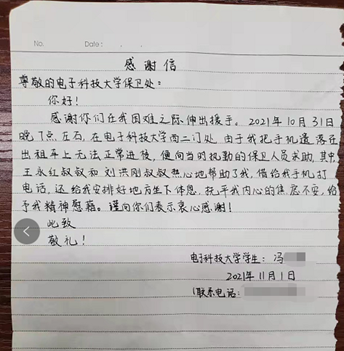 No.   Date:
感谢信
尊敬的电子科技大学保卫处:
你好!
感谢你们在我困难之际伸出援手。2021年10月31日
晚7点左右,在电子科技大学西二门处,由于我把手机遗落在
出租车上无法正常进校,便向当时执勤的保卫人员求助,其中
王永红叔叔和刘洪刚叔叔热心地帮助了我,借给我手机打
电话,还给我安排好地方坐下休息,抚平我内心的焦急不安,给
予我精神慰藉。谨向你们表示衷心感谢!
此致
敬礼!
电子科技大学学生:冯
2021年11月1日
(联系电话: